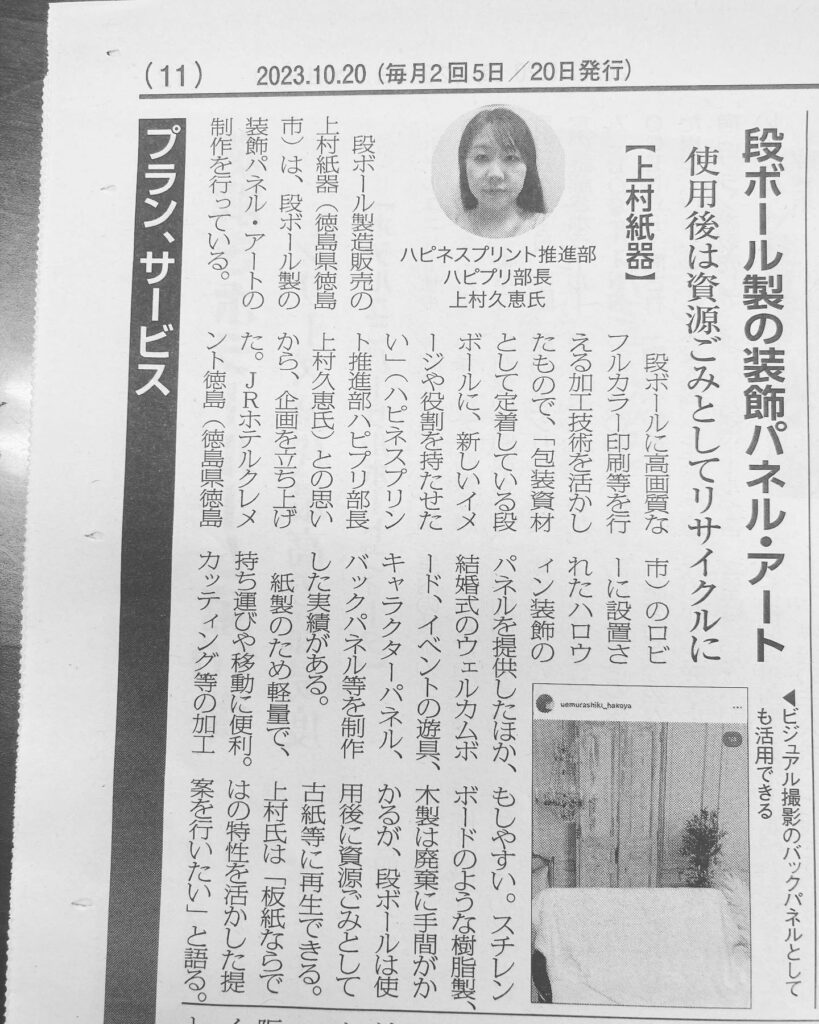 (11)
2023.10.20 (毎月2回5日／20日発行)
段ボール製の装飾パネル・アート
使用後は資源ごみとしてリサイクルに
【上村紙器】
ハピネスプリント推進部
ハピプリ部長
上村久恵氏
段ボール製造販売の
上村紙器（徳島県徳島
市）は、段ボール製の
装飾パネル・アートの
制作を行っている。
段ボールに高画質な
フルカラー印刷等を行
える加工技術を活かし
たもので、「包装資材
として定着している段
ボールに、新しいイメ
ージや役割を持たせた
い」（ハピネスプリン
ト推進部ハピプリ部長
上村久恵氏）との思い
から、企画を立ち上げ
た。ＪＲホテルクレメ
ント徳島（徳島県徳島
市）のロビ
ーに設置さ
れたハロウ
ィン装飾の
パネルを提供したほか、
結婚式のウェルカムボ
ード、イベントの遊具、
キャラクターパネル、
バックパネル等を制作
した実績がある。
紙製のため軽量で、
持ち運びや移動に便利。
カッティング等の加工
もしやすい。スチレン
ボードのような樹脂製、
木製は廃棄に手間がか
かるが、段ボールは使
用後に資源ごみとして
古紙等に再生できる。
上村氏は「板紙ならで
はの特性を活かした提
案を行いたい」と語る。
◀ビジュアル撮影のバックパネルとして
も活用できる
uemurashiki_hakoya
プラン、サービス